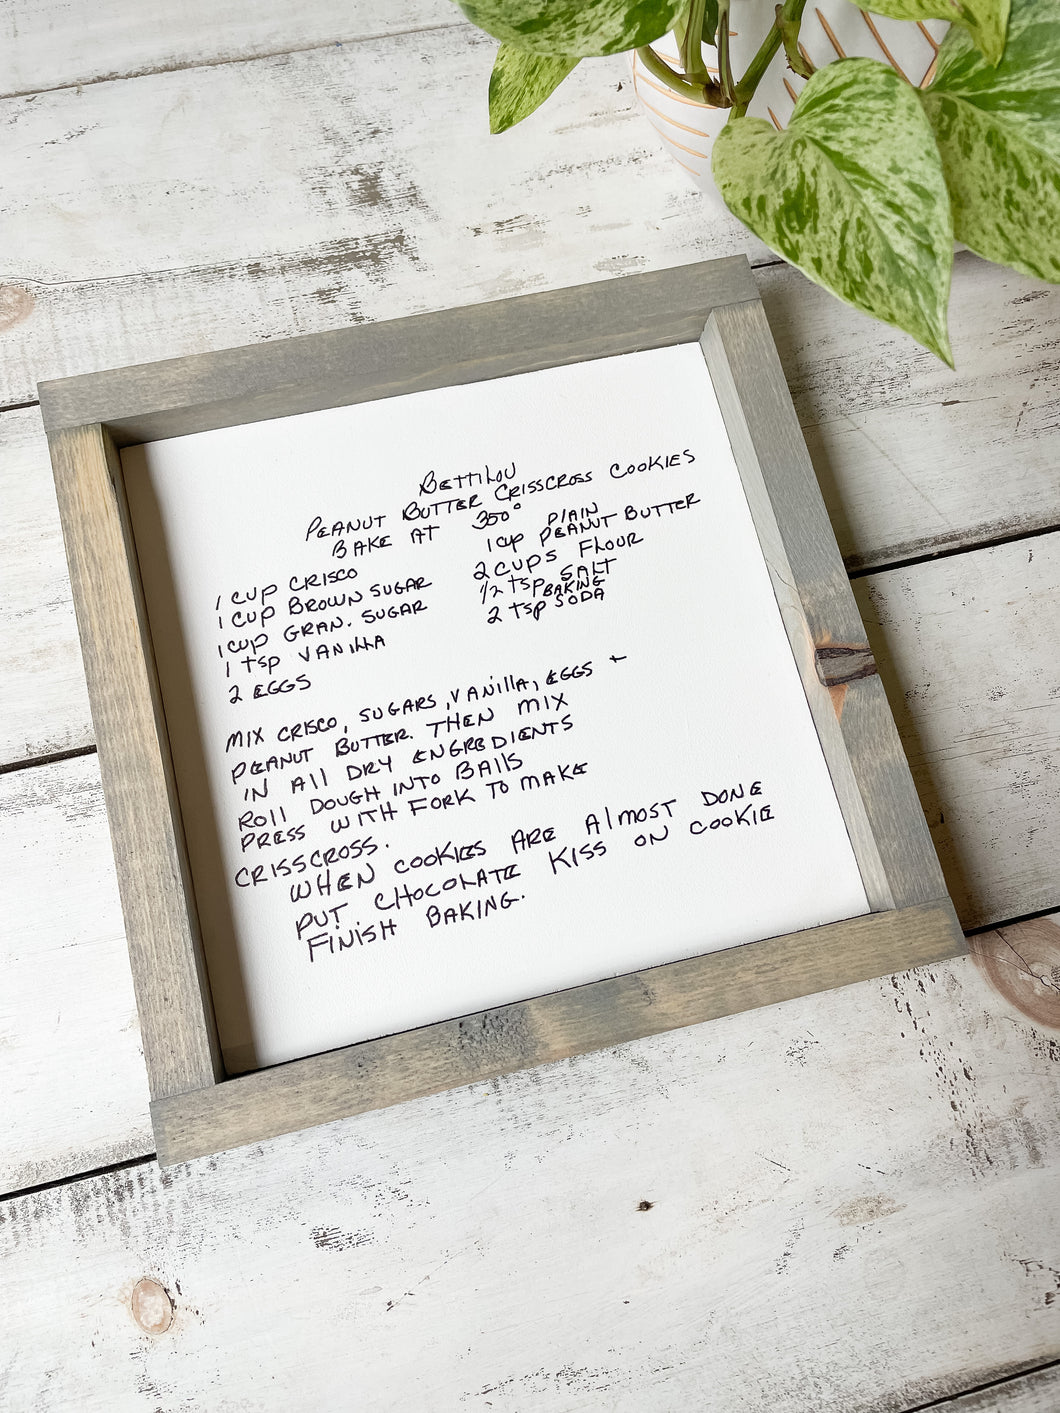 BETTILOU
PEANUT BUTTER CRISSCROSS COOKIES
BAKE AT 350°
1 CUP CRISCO
1 CUP BROWN SUGAR
1 CUP GRAN. SUGAR
1 tsp VANILLA
2 EGGS
PLAIN
1 CUP PEANUT BUTTER
2 CUPS FLOUR
1/2 tsp SALT
BAKING
2 tsp SODA
MIX CRISCO, SUGARS, VANILLA, EGGS +
PEANUT BUTTER. THEN MIX
IN ALL DRY ENGREDIENTS
ROLL DOUGH INTO BALLS
PRESS WITH FORK TO MAKE
CRISSCROSS.
WHEN COOKIES ARE ALMOST DONE
PUT CHOCOLATE KISS ON COOKIE
FINISH BAKING.